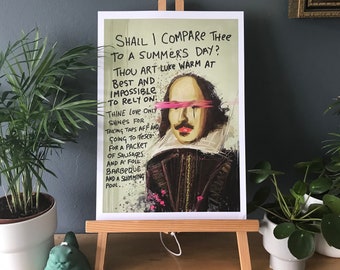 SHALL I COMPARE THEE
TO A SUMMER'S DAY?
THOU ART LUKE WARM AT
BEST AND
IMPOSSIBLE
TO RELY ON.
THINE LOVE ONLY
SHINES FOR
TAKING TAPS AFF AND
GOING TO TESCO
FOR A PACKET
OF SAUSAGES
AND A FOIL
BARBEQUE
AND A SWIMMING
POOL...